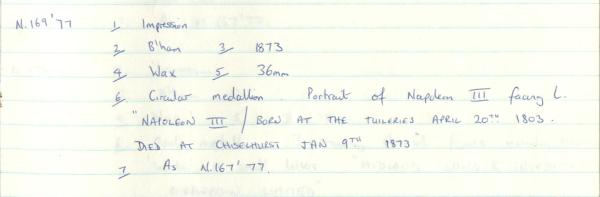 N.169'77 1 Impression
2 B'ham 3 1873
4 Wax 5 36mm
6 Circular medallion. Portrait of Napoleon III facing L.
"NAPOLEON III / BORN AT THE TUILERIES APRIL 20TH 1803.
DIED AT CHISELHURST JAN 9TH 1873
7 As N.167'77.